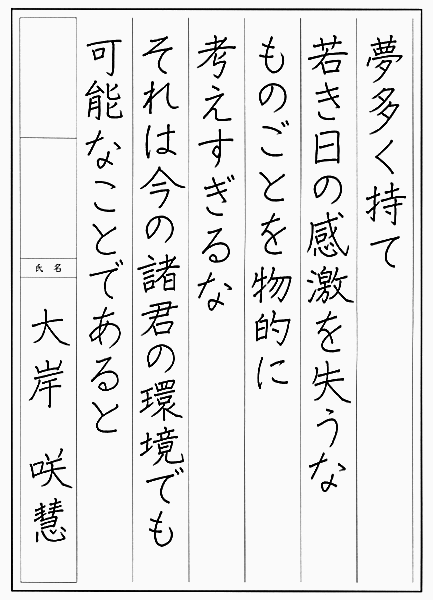 夢多く持て
若き日の感激を失うな
ものごとを物的に
考えすぎるな
それは今の諸君の環境でも
可能なことであると
氏名
大岸 咲慧